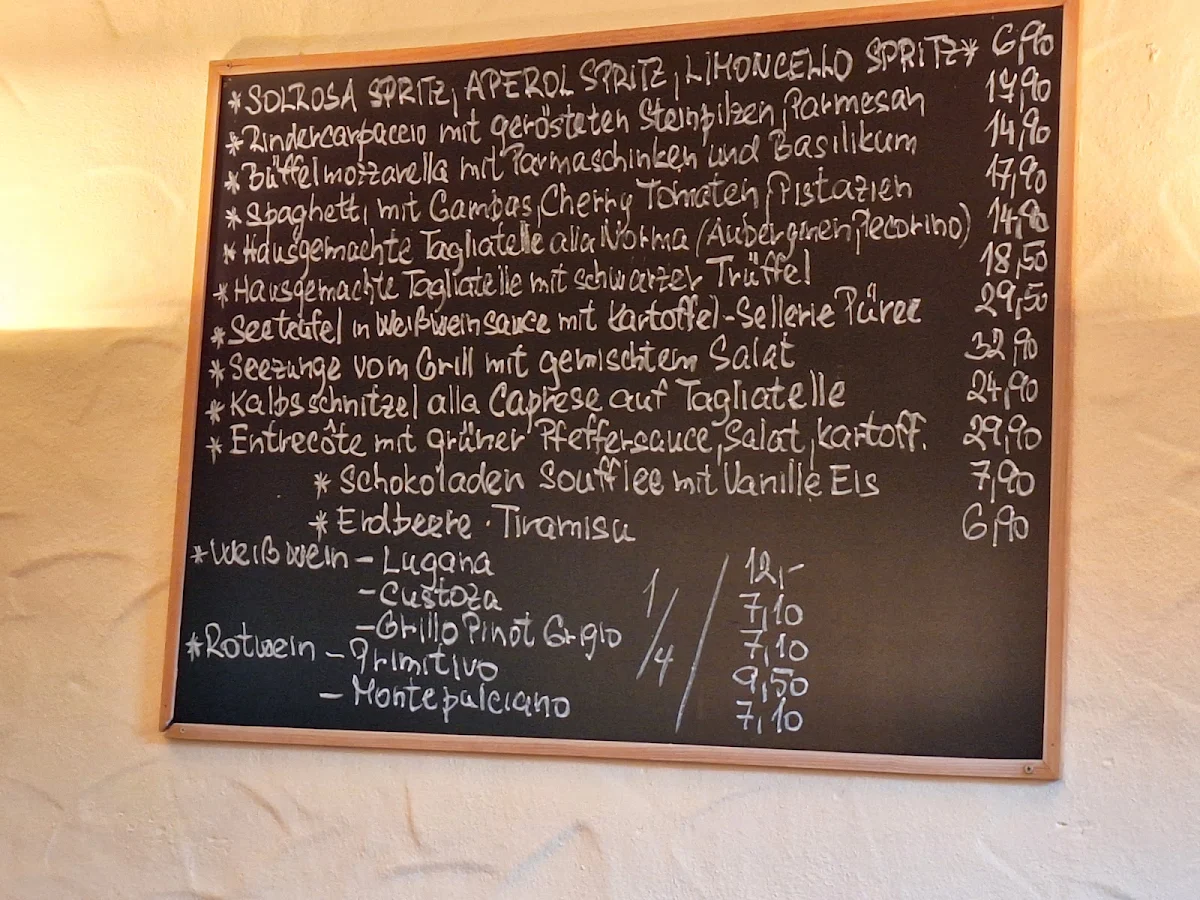 *SOLROSA SPRITZ, APEROL SPRITZ, LIMONCELLO SPRITZ* 6,90
*Rindercarpaccio mit gerösteten Steinpilzen, Parmesan 17,90
*Büffelmozzarella mit Parmaschinken und Basilikum 14,90
*Spaghetti mit Gambas, Cherry Tomaten, Pistazien 17,90
*Hausgemachte Tagliatelle alla Norma (Auberginen, Pecorino) 14,90
*Hausgemachte Tagliatelle mit schwarzer Trüffel 18,50
*Seeteufel in Weißweinsauce mit Kartoffel-Sellerie Püree 29,50
*Seezunge vom Grill mit gemischtem Salat 32,90
*Kalbsschnitzel alla Caprese auf Tagliatelle 24,90
*Entrecôte mit grüner Pfeffersauce, Salat, Kartoff. 29,90
*Schokoladen Soufflee mit Vanille Eis 7,90
*Erdbeere-Tiramisu 6,90
*Weißwein - Lugana 1/4 / 12,-
- Custoza 7,10
- Grillo Pinot Grigio 7,10
*Rotwein - Primitivo 9,50
- Montepulciano 7,10